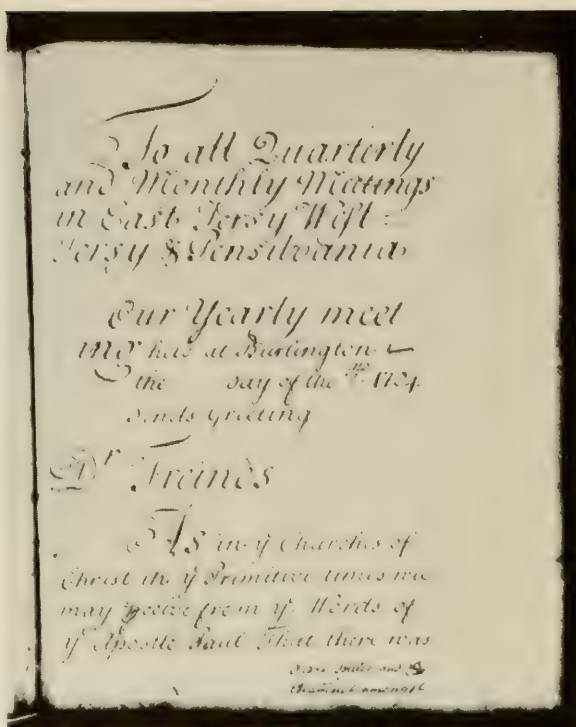 To all Quarterly
and Monthly Meetings
in East Jersy West =
Jersy & Pensilvania
Our Yearly meet
ing held at Burlington
the day of the 1704
sends Greeting
Dr Freinds
As in ye Churches of
Christ in ye Primitive times we
may perceive from ye Words of
ye Apostle Paul That there was
amongst